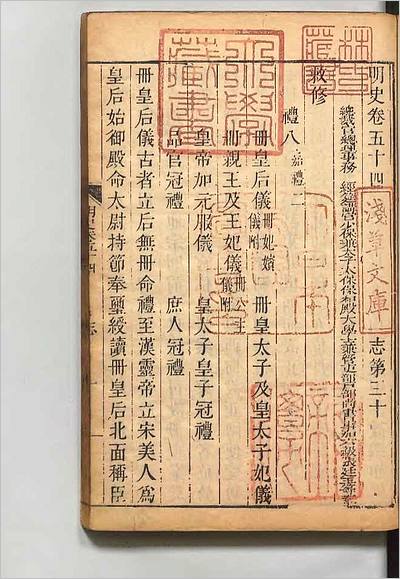 明史卷五十四　志第三十
總裁官總理事務　經筵講官少保兼太子太保保和殿大學士兼管吏部戶部尚書事加六級張廷玉等奉
敕修
禮八　嘉禮二
冊皇后儀　冊妃嬪儀附　冊皇太子及皇太子妃儀
冊親王及王妃儀　冊公主儀附
皇帝加元服儀　皇太子皇子冠禮
品官冠禮　庶人冠禮
冊皇后儀古者立后無冊命禮至漢靈帝立宋美人為
皇后始御殿命太尉持節奉璽綬讀冊皇后北面稱臣
淺草文庫